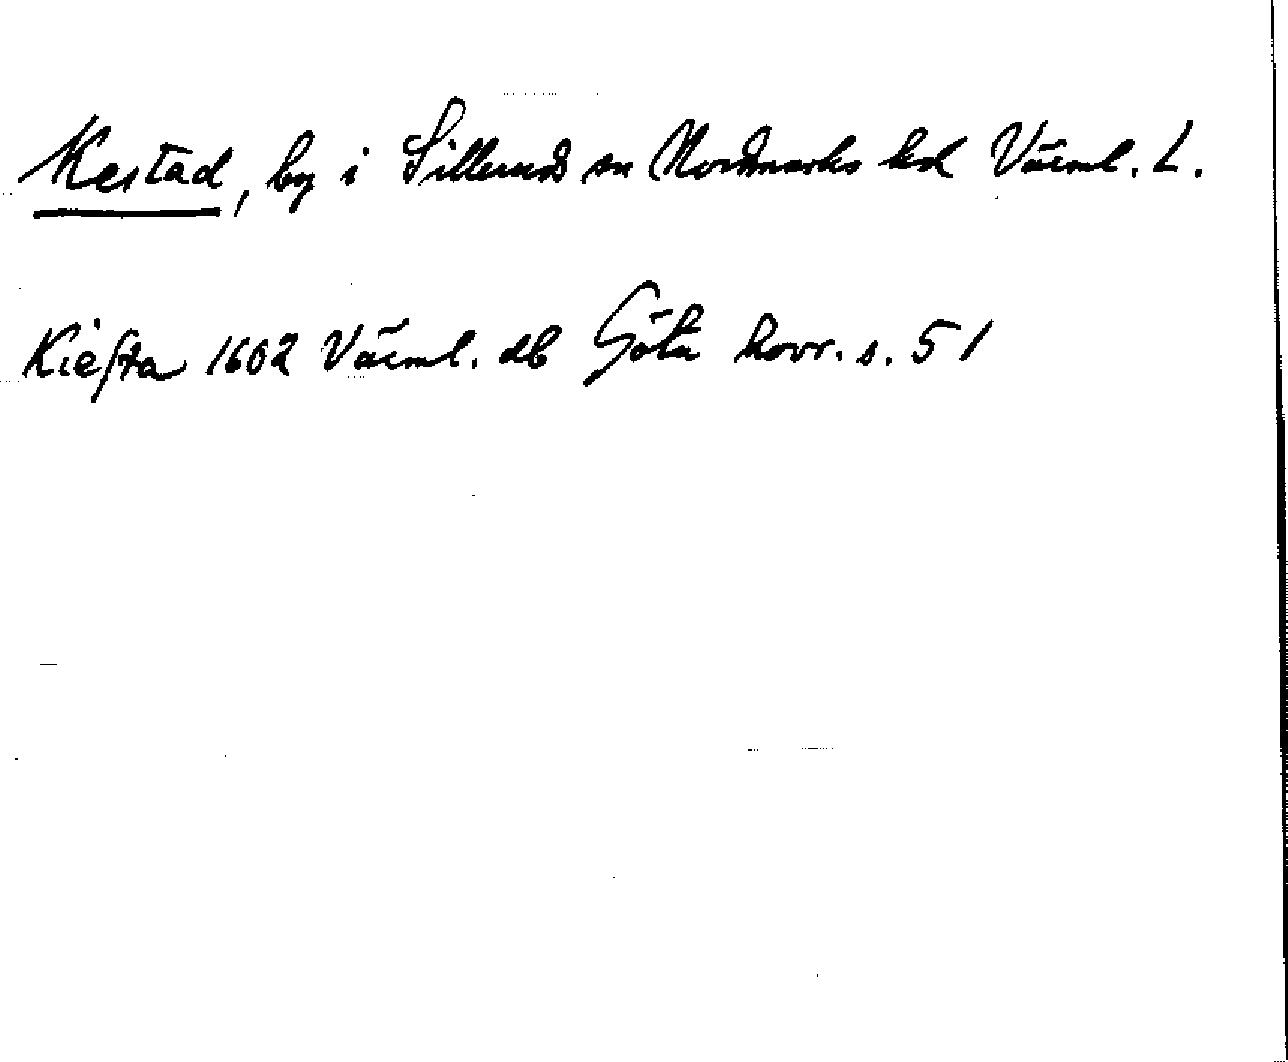 Kestad, by i Sillerud sn Nordmarks hd Värml. L.
Kiesta 1602 Värml. db Göta hovr. s. 51